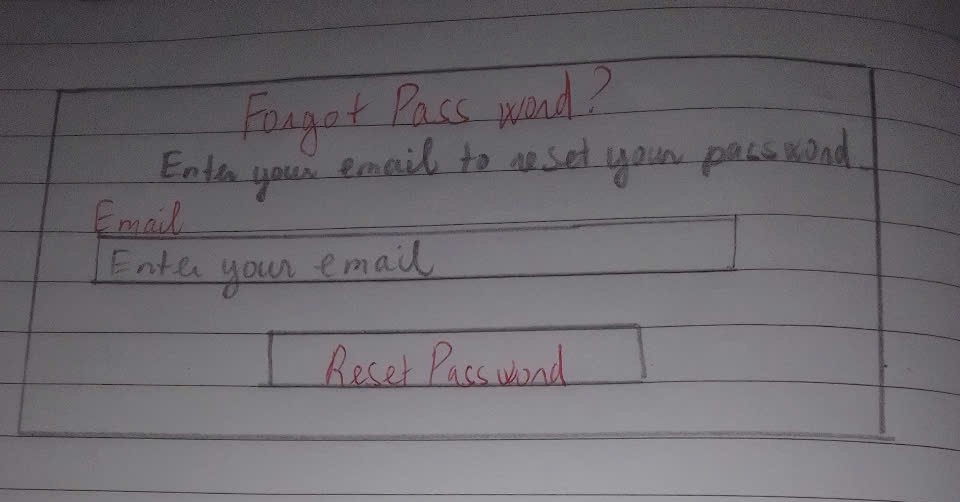 Forgot Password?
Enter your email to reset your password
Email
Enter your email
Reset Password